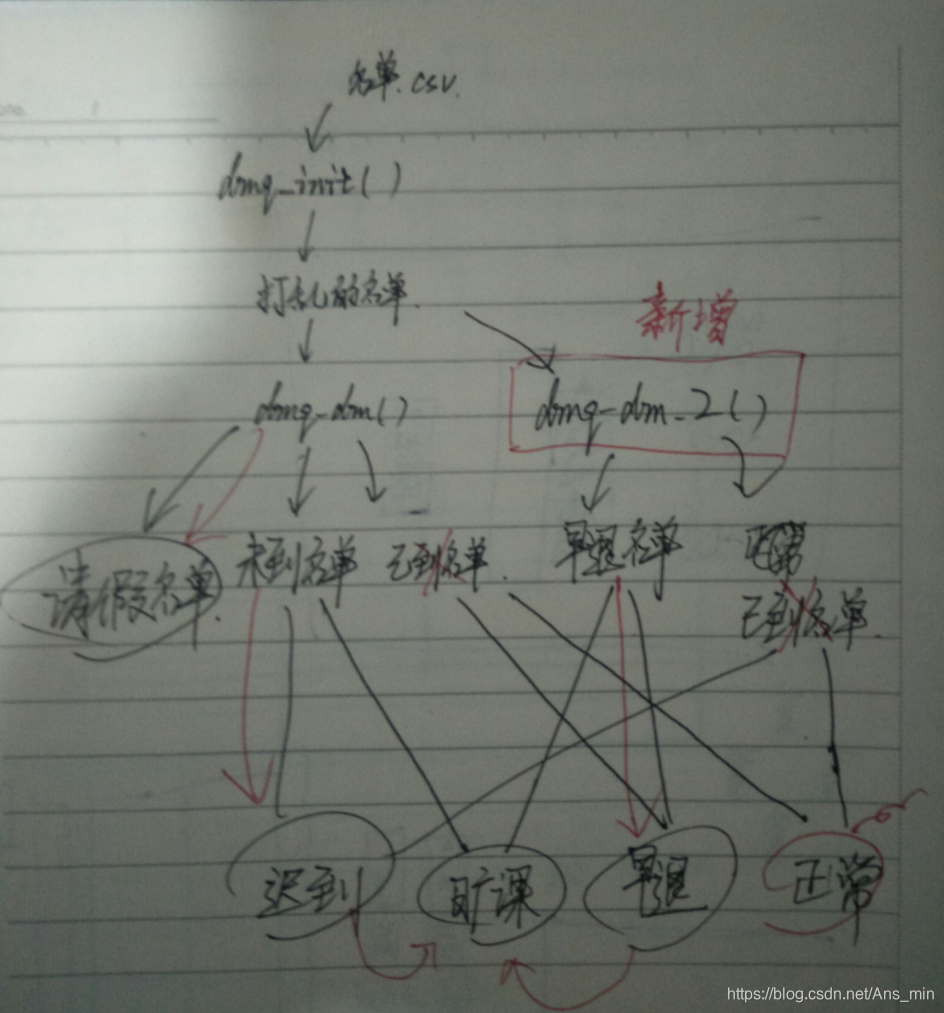 名单.csv.
dmq_init()
打乱的名单.
新增
dmq-dm()
dmq-dm-2()
请假名单.
未到名单
已到名单.
早退名单
已到名单.
迟到
旷课
早退
正常
https://blog.csdn.net/Ans_min